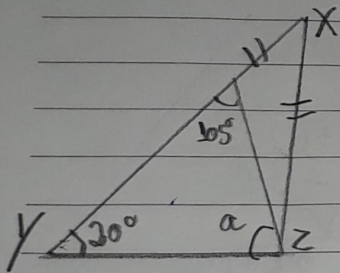 X
65°
Y 20° a Z